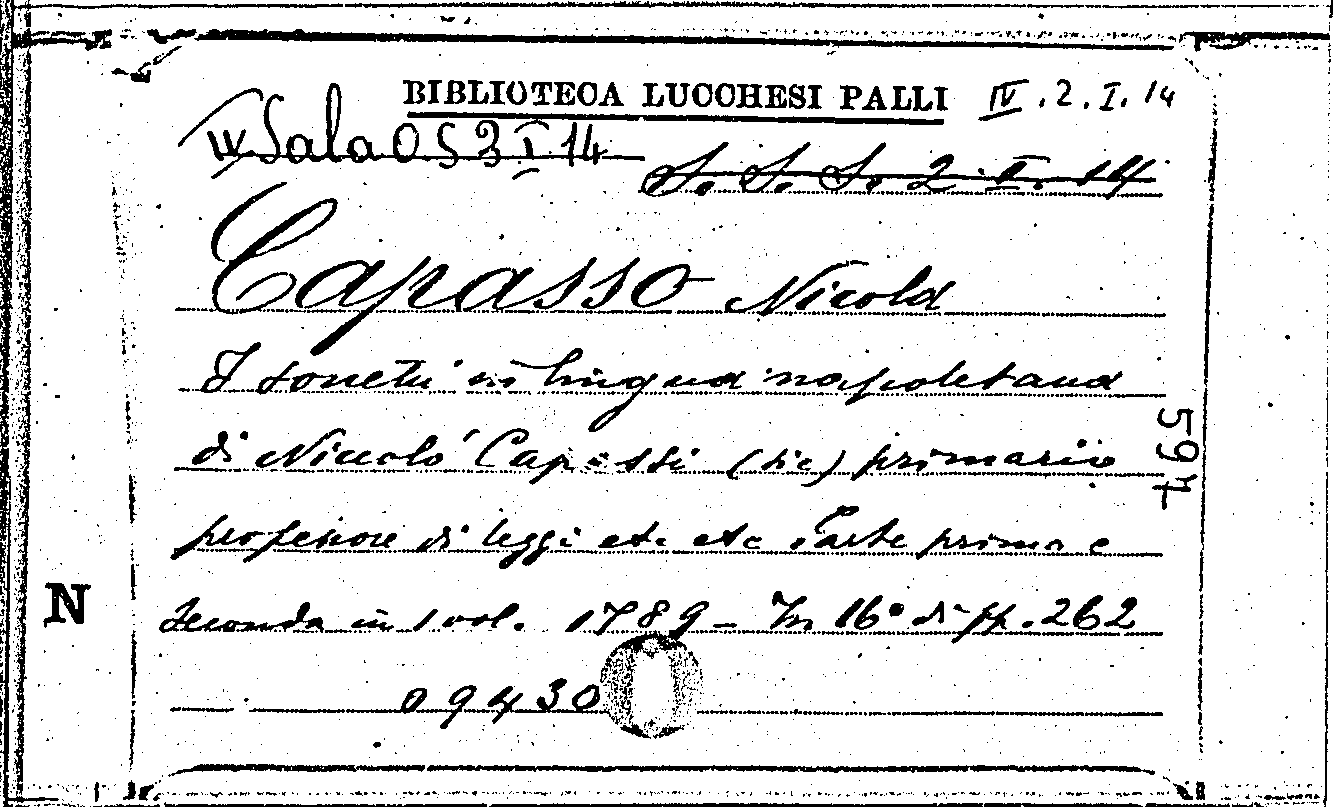 BIBLIOTECA LUCCHESI PALLI IV.2.I.14
IV Sala O S 3 I 14
S. S. S. 2 II. 14
Capasso Nicola
I sonetti in lingua napoletana
di Niccolò Capassi (sic) primario
professore di leggi etc. etc. Parte prima e
seconda in 1 vol. 1789 - In 16° di pp. 262
09430
N